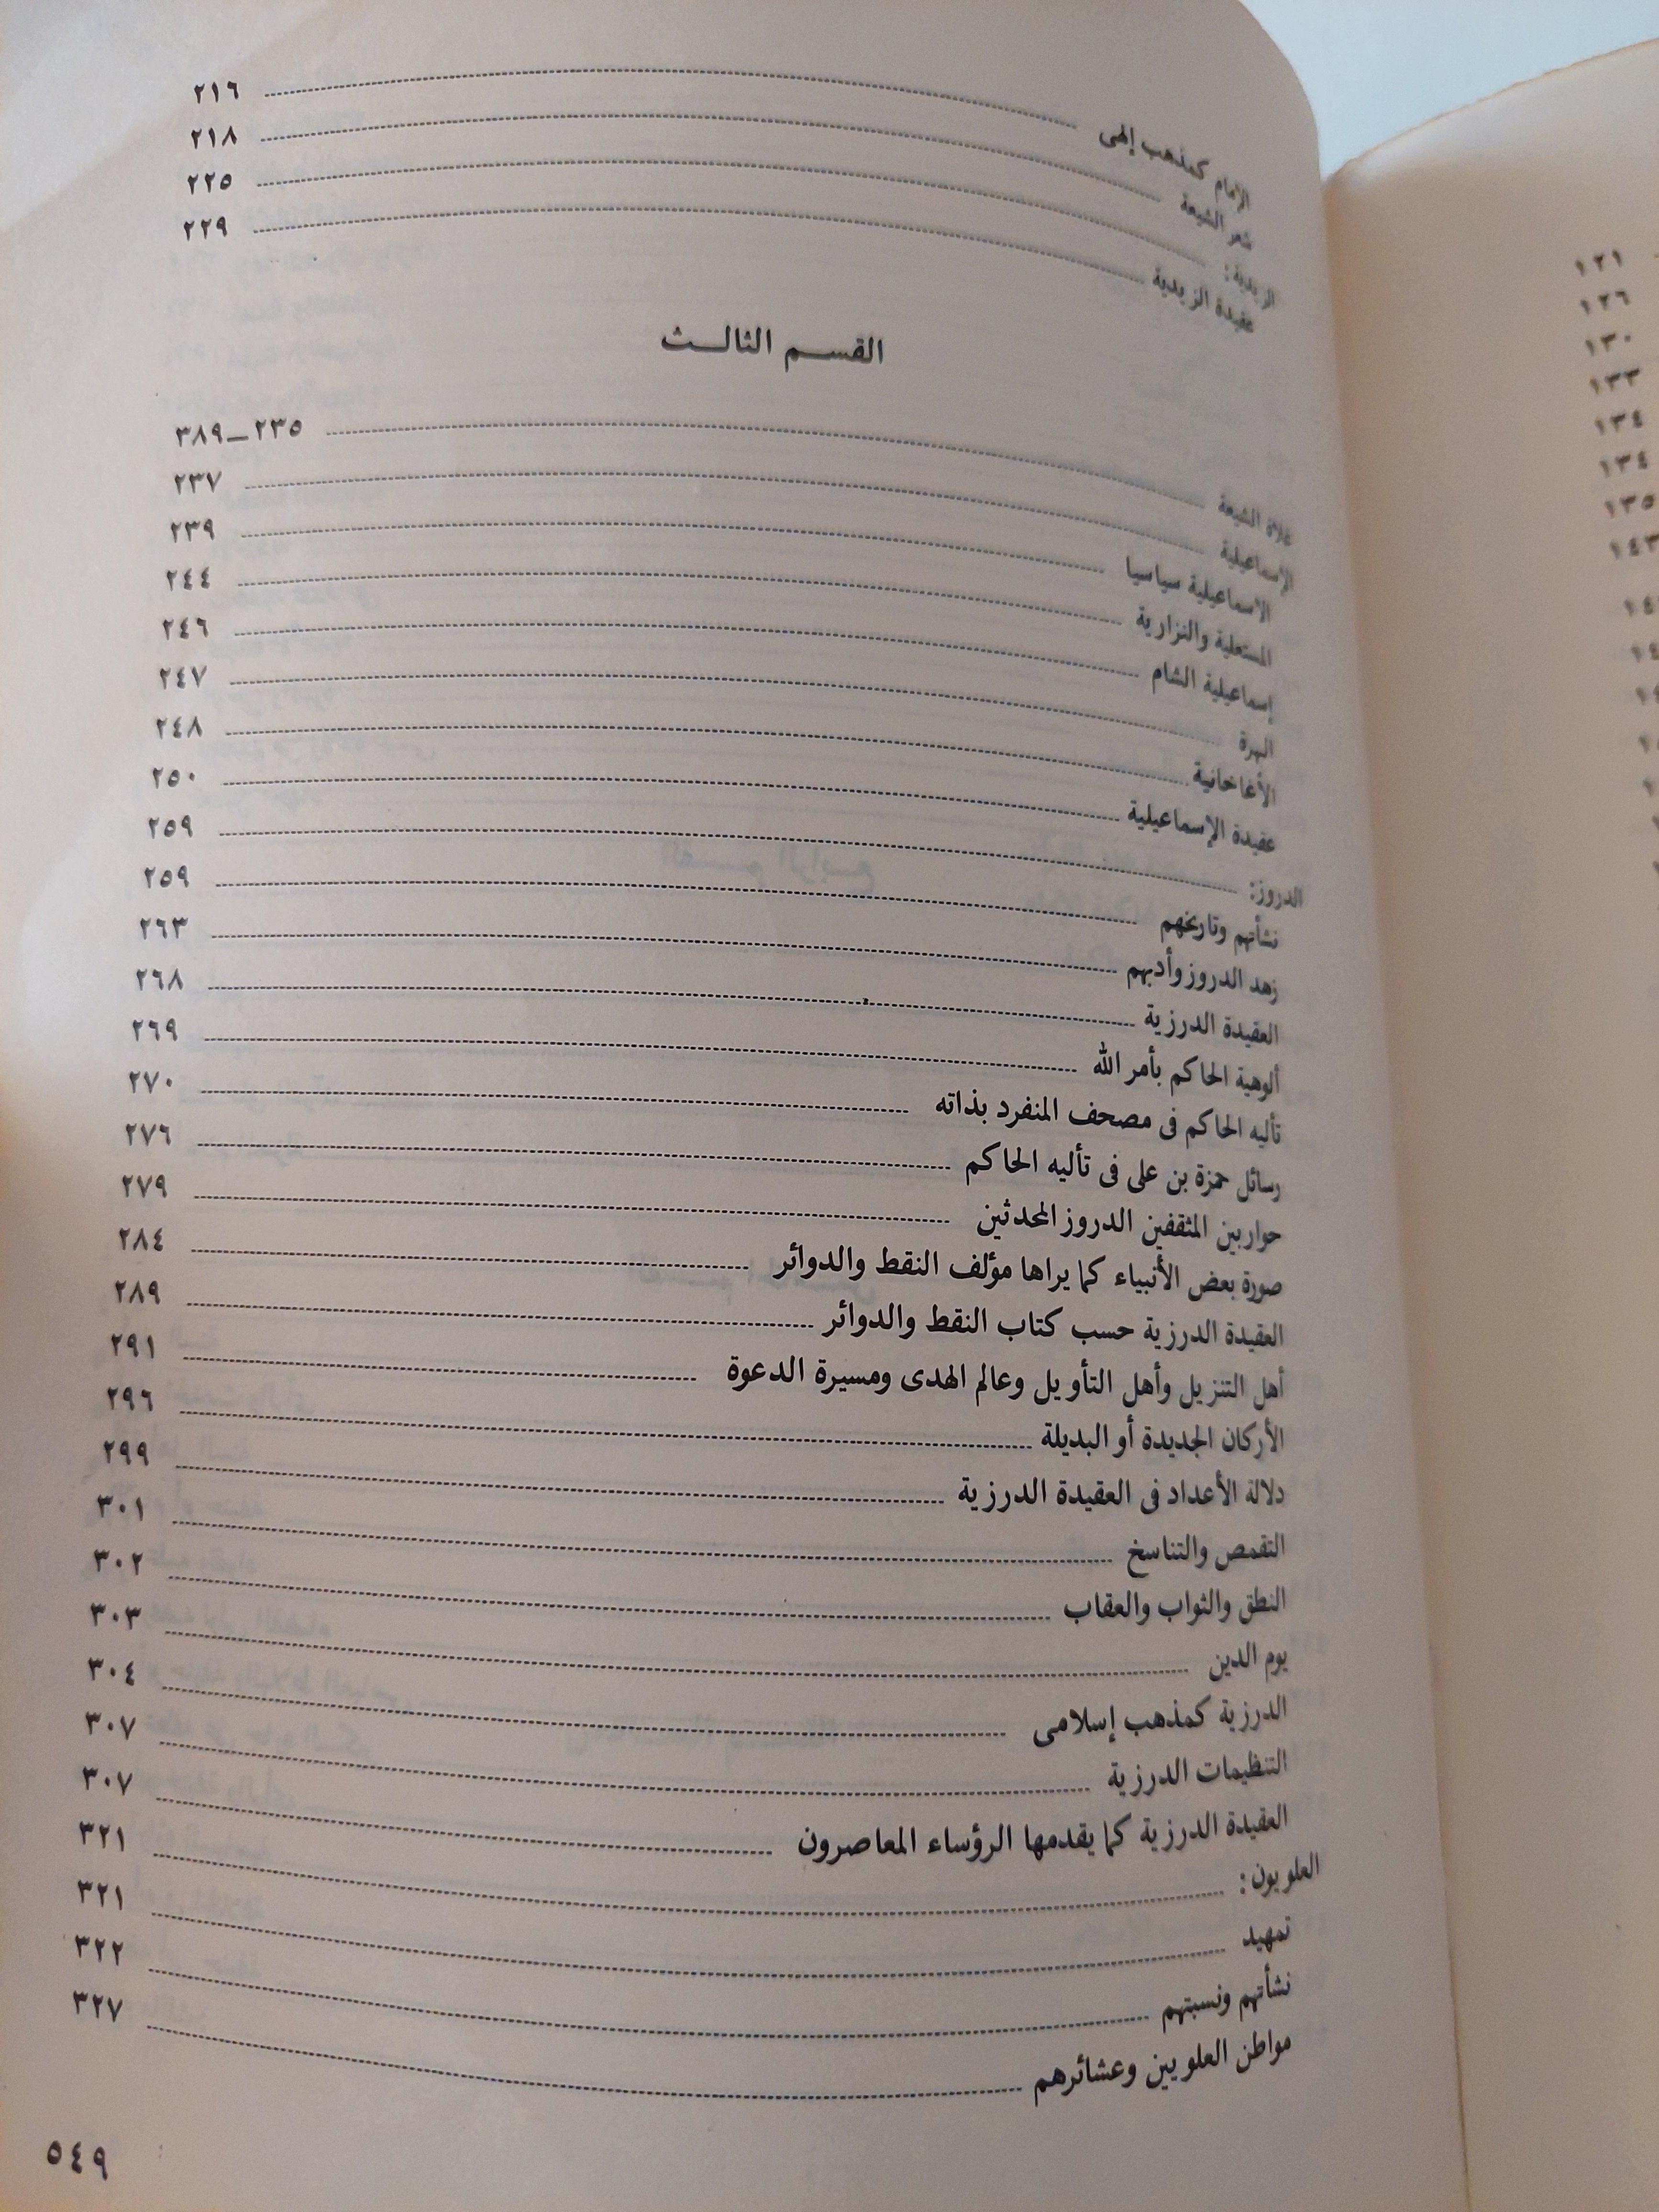 الإمام كمذهب إلهى ٢١٦
شعر الشيعة ٢١٨
الزيدية : ٢٢٥
عقيدة الزيدية ٢٢٩
القسم الثالث
غلاة الشيعة ٢٣٥–٣٨٩
الإسماعيلية ٢٣٧
الإسماعيلية سياسيا ٢٣٩
المستعلية والنزارية ٢٤٤
إسماعيلية الشام ٢٤٦
البهرة ٢٤٧
الأغاخانية ٢٤٨
عقيدة الإسماعيلية ٢٥٠
الدروز: ٢٥٩
نشأتهم وتاريخهم ٢٥٩
زهد الدروز وأدبهم ٢٦٣
العقيدة الدرزية ٢٦٨
ألوهية الحاكم بأمر الله ٢٦٩
تأليه الحاكم فى مصحف المنفرد بذاته ٢٧٠
رسائل حمزة بن على فى تأليه الحاكم ٢٧٦
حوار بين المثقفين الدروز المحدثين ٢٧٩
صورة بعض الأنبياء كما يراها مؤلف النقط والدوائر ٢٨٤
العقيدة الدرزية حسب كتاب النقط والدوائر ٢٨٩
أهل التنزيل وأهل التأويل وعالم الهدى ومسيرة الدعوة ٢٩١
الأركان الجديدة أو البديلة ٢٩٦
دلالة الأعداد فى العقيدة الدرزية ٢٩٩
التقمص والتناسخ ٣٠١
النطق والثواب والعقاب ٣٠٢
يوم الدين ٣٠٣
الدرزية كمذهب إسلامى ٣٠٤
التنظيمات الدرزية ٣٠٧
العقيدة الدرزية كما يقدمها الرؤساء المعاصرون ٣٠٧
العلويون : ٣٢١
تمهيد ٣٢١
نشأتهم ونسبتهم ٣٢٢
مواطن العلويين وعشائرهم ٣٢٧
٥٤٩
١٢١
١٢٦
١٣٠
١٣٣
١٣٤
١٣٤
١٣٥
١٤٣